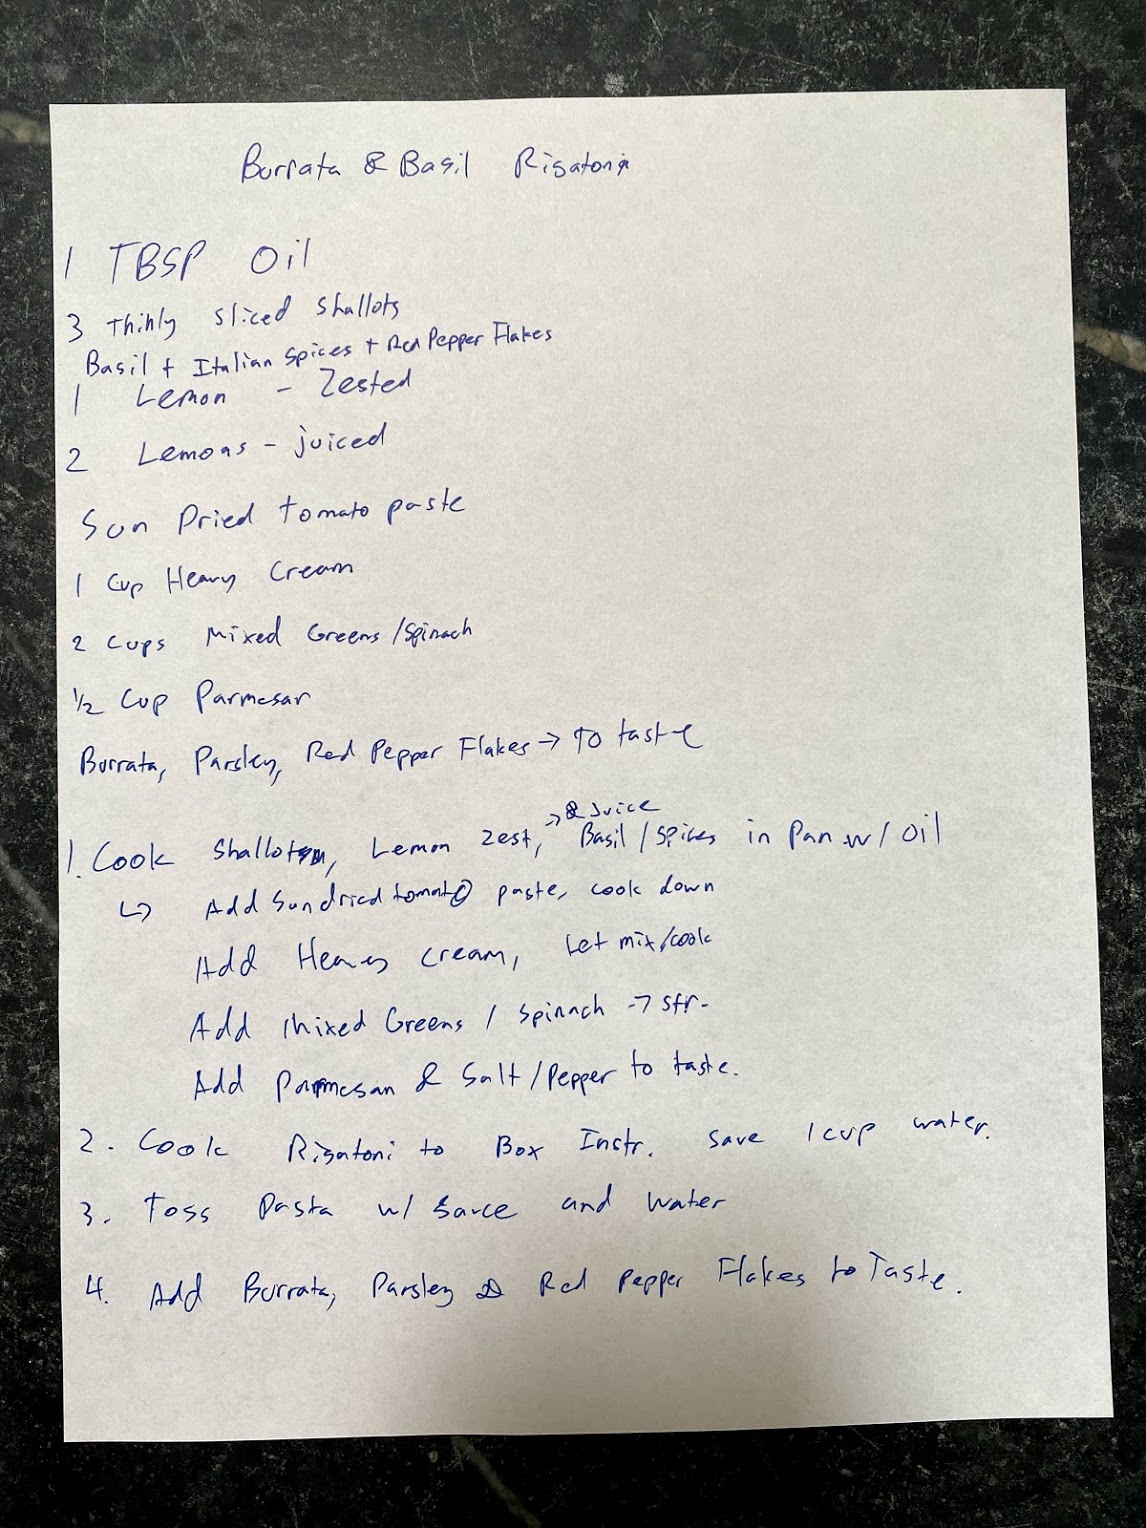 Burrata & Basil Rigatoni
1 TBSP Oil
3 Thinly sliced shallots
Basil + Italian Spices + Red Pepper Flakes
1 Lemon - Zested
2 Lemons - juiced
Sun Dried tomato paste
1 Cup Heavy Cream
2 Cups Mixed Greens/Spinach
1/2 Cup Parmesan
Burrata, Parsley, Red Pepper Flakes → To taste
→ & Juice
1. Cook Shallots, Lemon Zest, Basil/Spices in Pan w/ Oil
↳ Add Sundried tomato paste, cook down
Add Heavy cream, Let mix/cook
Add Mixed Greens / Spinach → stir.
Add Parmesan & Salt/Pepper to taste.
2. Cook Rigatoni to Box Instr. Save 1 cup water.
3. Toss Pasta w/ Sauce and Water
4. Add Burrata, Parsley & Red Pepper Flakes to Taste.